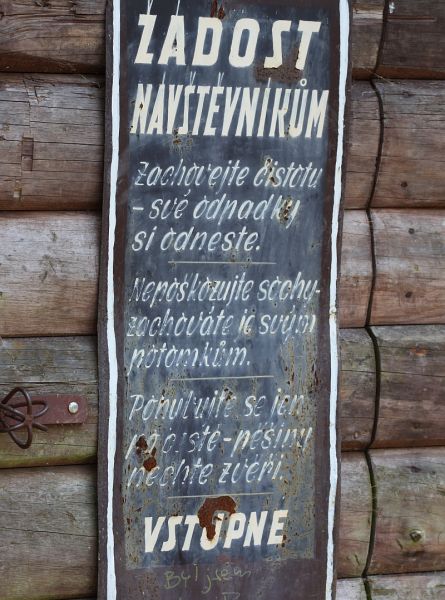 ŽÁDOST
NÁVŠTĚVNÍKŮM
Zachovejte čistotu
- své odpadky
si odneste.
Nepoškozujte sochy-
zachováte je svým
potomkům.
Pohybujte se jen
po cestě-pěšiny
nechte zvěři.
VSTUPNÉ
Byl jsem